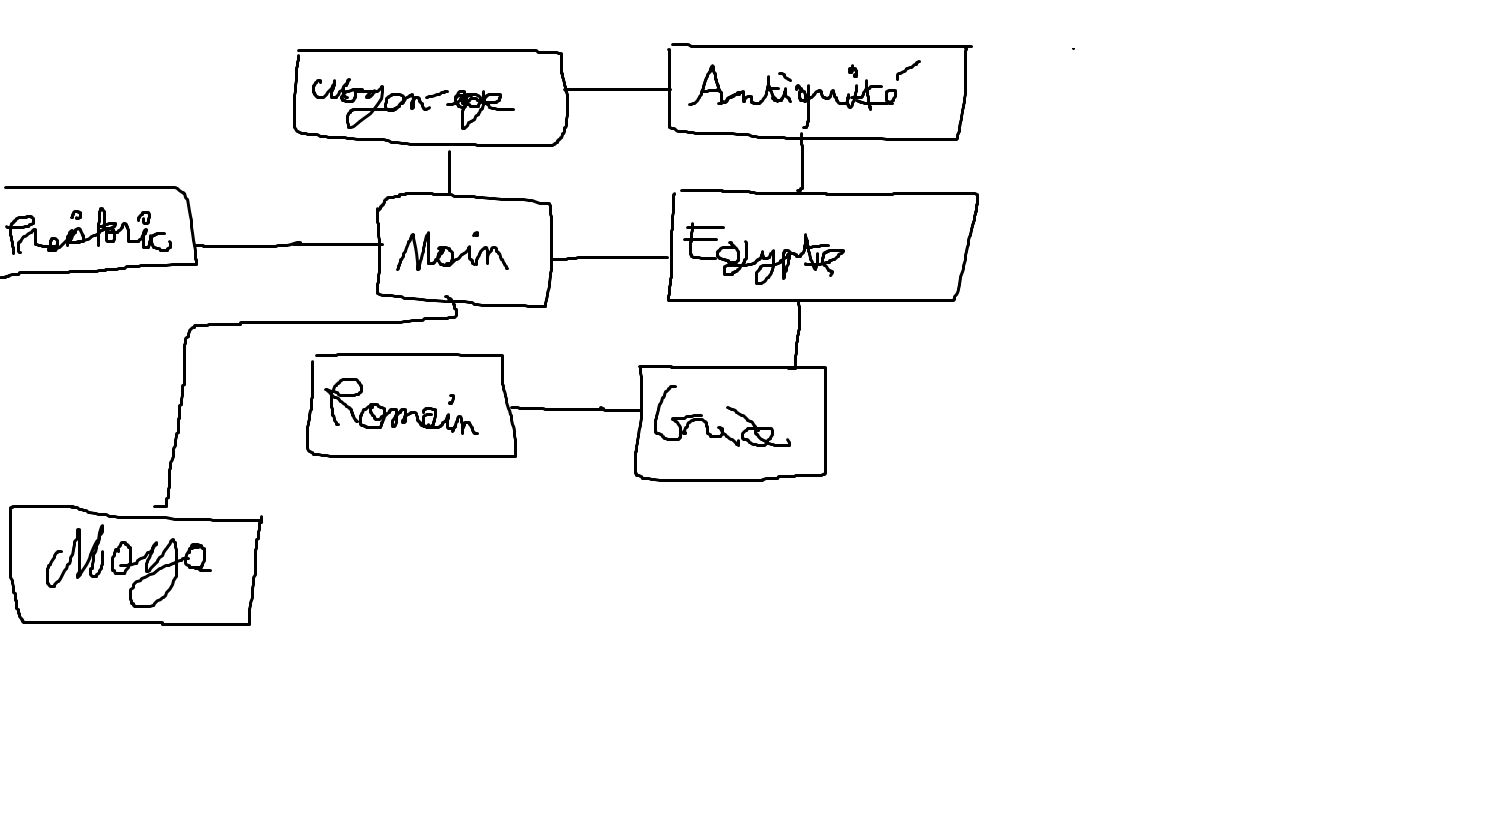 Moyen-age
Antiquité
Préistoric
Main
Egypte
Romain
Grèce
Maya